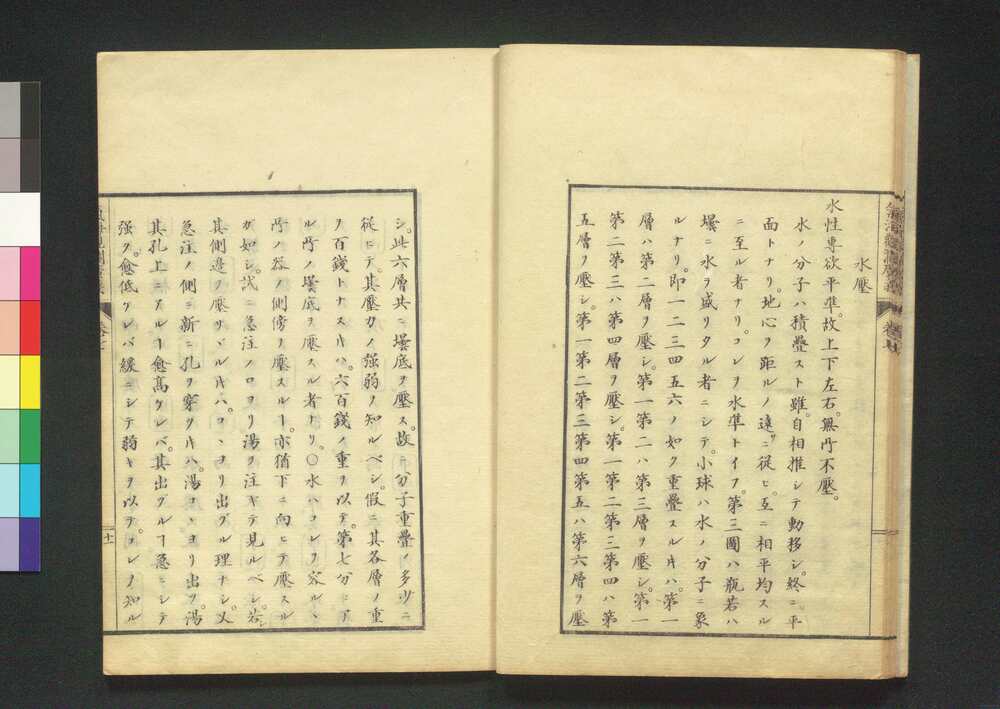 水壓
水性專欲平準。故上下左右。無所不壓。
水ノ分子ハ積疊スト雖。自相推シテ動移シ。終ニ平
面トナリ。地心ヲ距ルノ遠ニ從ヒ。互ニ相平均スル
ニ至ル者ナリ。コレヲ水準トイフ。第三圖ハ瓶若ハ
壜ニ水ヲ盛リタル者ニシテ。小球ハ水ノ分子ニ象
ルナリ。即一二三四五六ノ如ク重疊スルキハ。第一
層ハ第二層ヲ壓シ。第一第二ハ第三層ヲ壓シ。第一
第二第三ハ第四層ヲ壓シ。第一第二第三第四ハ第
五層ヲ壓シ。第一第二第三第四第五ハ第六層ヲ壓
シ。此六層共ニ壜底ヲ壓ス。故ニ分子重疊ノ多少ニ
從ニテ。其壓力ノ強弱ノ知ルベシ。假ニ其各層ノ重
ヲ百錢トナスキハ。六百錢ノ重ヲ以テ。第七分ニア
ル所ノ壜底ヲ壓スル者ナリ。〇水ハコレヲ容ルヽ
所ノ器ノ側傍ヲ壓スルヿ。亦猶下ニ向ヒテ壓スル
ガ如シ。試ニ急注ノ口ヨリ湯ヲ注キテ見ルベシ。若シ
其側邊ヲ壓サヾルキハ。コヽヨリ出ヅル理ナシ。又
急注ノ側ニ新ニ孔ヲ穿クキハ。湯コヽヨリ出ヅ。湯
其孔上ニアルヿ愈高ケレバ。其出ヅルヿ急ニシテ
強ク。愈低ケレバ緩ニシテ弱キヲ以テ。コレヲ知ル
卷之七
十一